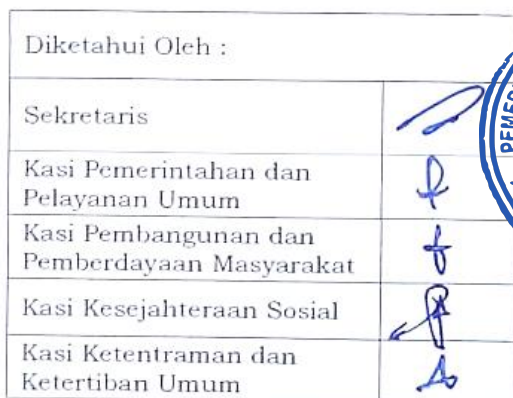 Diketahui Oleh :
Sekretaris
Kasi Pemerintahan dan
Pelayanan Umum
Kasi Pembangunan dan
Pemberdayaan Masyarakat
Kasi Kesejahteraan Sosial
Kasi Ketentraman dan
Ketertiban Umum